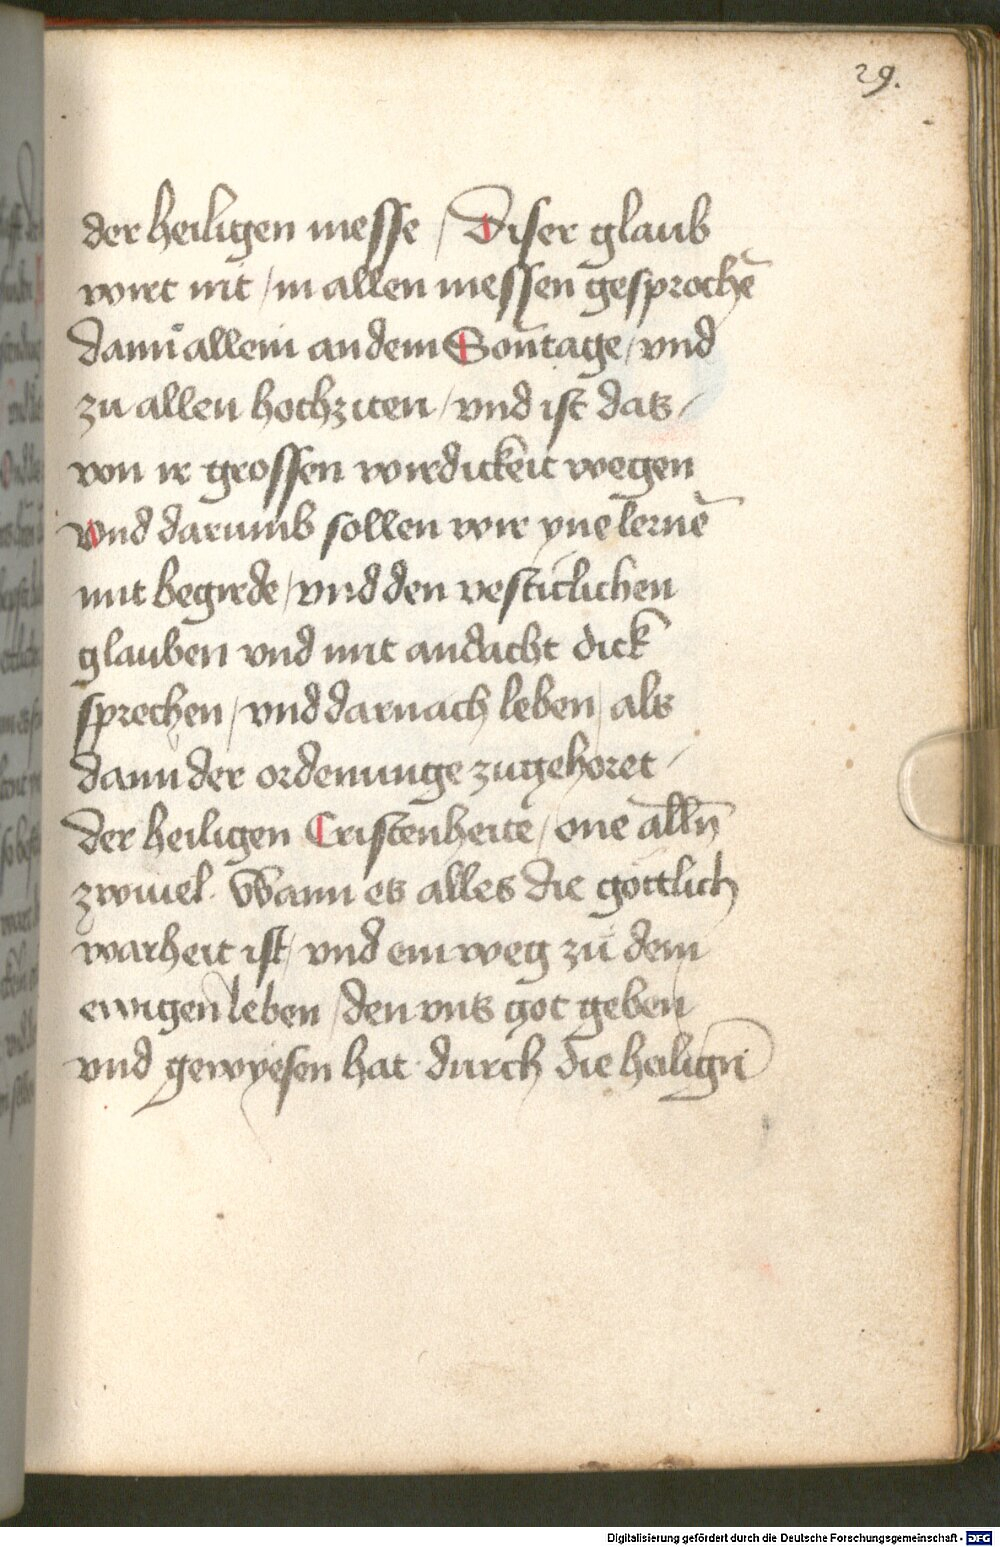 29.
der heiligen messe / Diser glaub
wirt nit / in allen messen gesprochē
dann allein an dem Sontage / vnd
zu allen hochziten / vnd ist das /
von ir grossen wirdickeit wegen
vnd darumb sollen wir yne lernē
mit begirde / vnd den vesticlichen
glauben vnd mit andacht dick
sprechen / vnd darnach leben / als
dann der ordenunge zugehoret /
der heiligen Cristenheite / one alln̄
zwiuel. Wann es alles die gottlich
warheit ist / vnd ein weg zu dem
ewigen leben / den vns got geben
vnd gewyesen hat durch die heilign̄
Digitalisierung gefördert durch die Deutsche Forschungsgemeinschaft - DFG